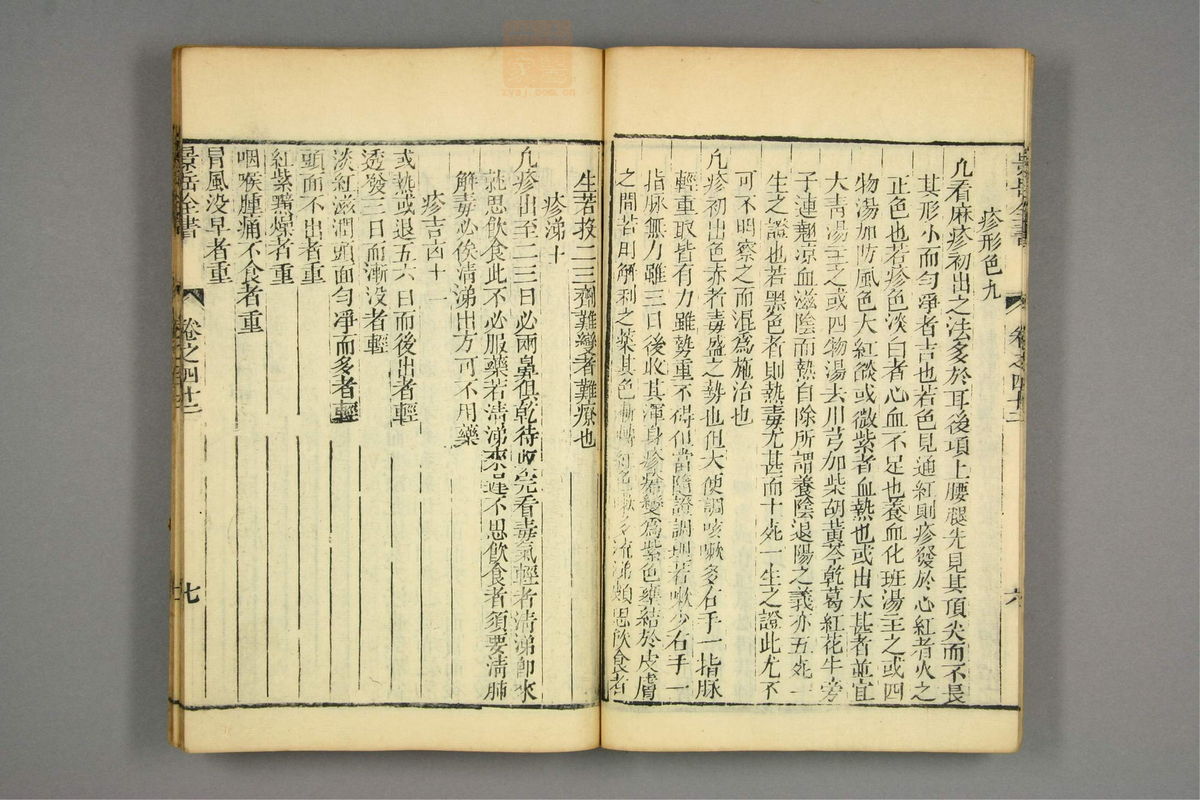 疹形色九
凡看麻疹初出之法多於耳後項上腰腿先見其頂尖而不長
其形小而勻淨者吉也若色見通紅則疹發於心紅者火之
正色也若疹色淡白者心血不足也養血化班湯主之或四
物湯加防風色大紅燄或微紫者血熱也或出太甚者並宜
大青湯主之或四物湯去川芎加柴胡黃芩乾葛紅花牛蒡
子連翹凉血滋陰而熱自除所謂養陰退陽之義亦五死一
生之證也若黑色者則熱毒尤甚而十死一生之證此尤不
可不明察之而混爲施治也
凡疹初出色赤者毒盛之勢也但大便調咳嗽多右手一指脉
輕重取皆有力雖勢重不碍但當隨證調理若嗽少右手一
指脉無力雖三日後收其渾身疹瘄變爲紫色壅結於皮膚
之間若用解利之藥其色漸轉紅色嗽多流涕頗思飲食者
生若投二三劑難變者難療也
疹涕十
凡疹出至二三日必兩鼻俱乾待收完看毒氣輕者清涕卽來
就思飲食此不必服藥若清涕來遲不思飲食者須要清肺
解毒必俟清涕出方可不用藥
疹吉凶十一
或熱或退五六日而後出者輕
透發三日而漸没者輕
淡紅滋潤頭面勻淨而多者輕
頭面不出者重
紅紫黯燥者重
咽喉腫痛不食者重
冒風没早者重
景岳全書
卷之四十二
七
景岳全書
卷之四十二
六